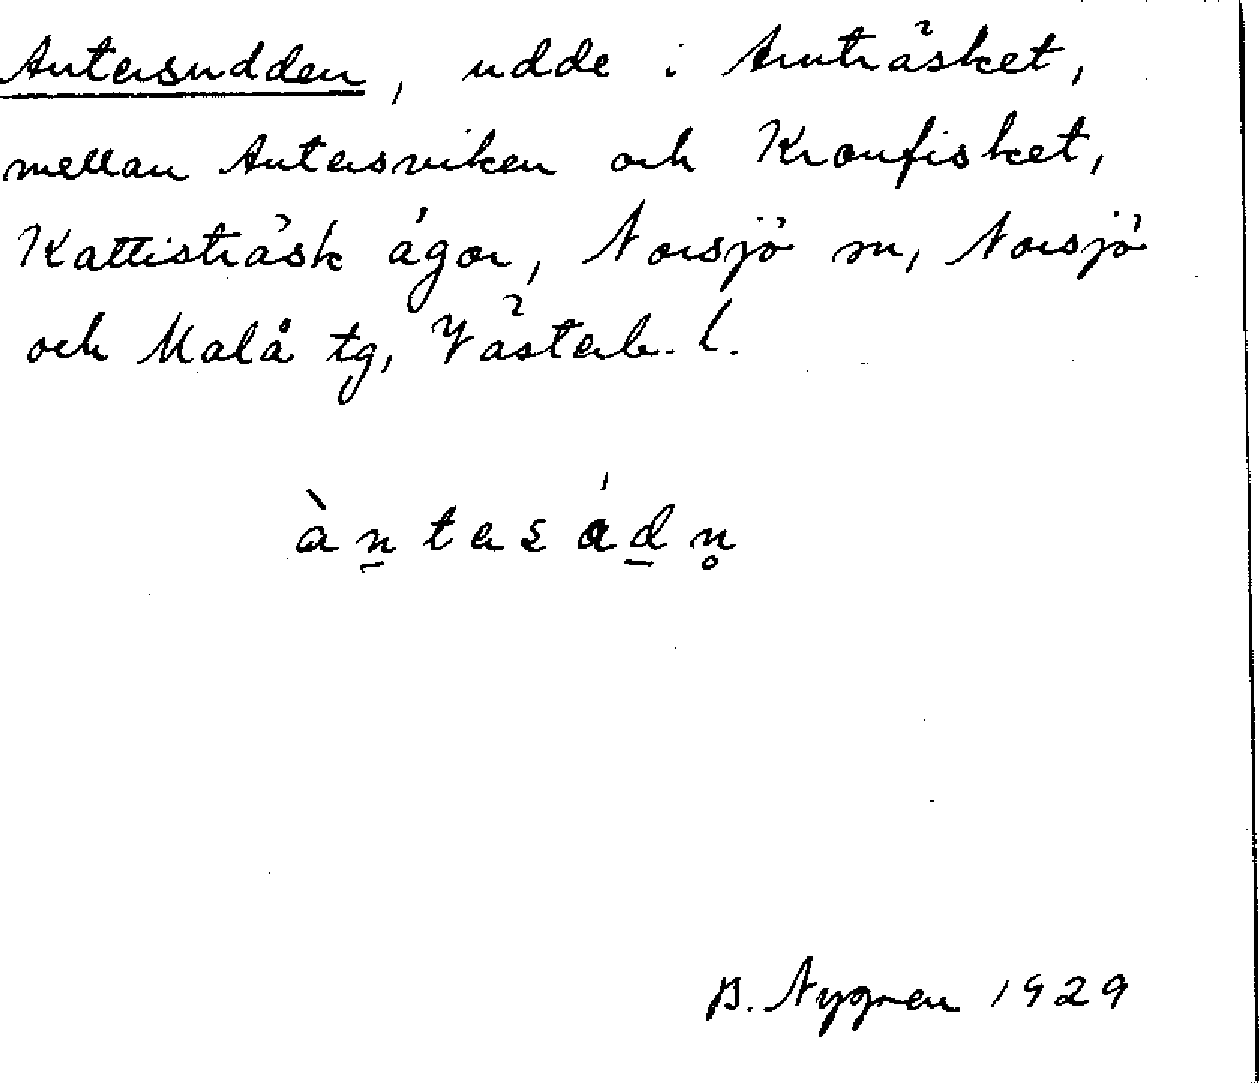 Antersudden, udde i Arnträsket,
mellan Antersviken och Kronfisket,
Kattisträsk ägor, Norsjö sn, Norsjö
och Malå tg, Västerb. l.
B. Nygren 1929